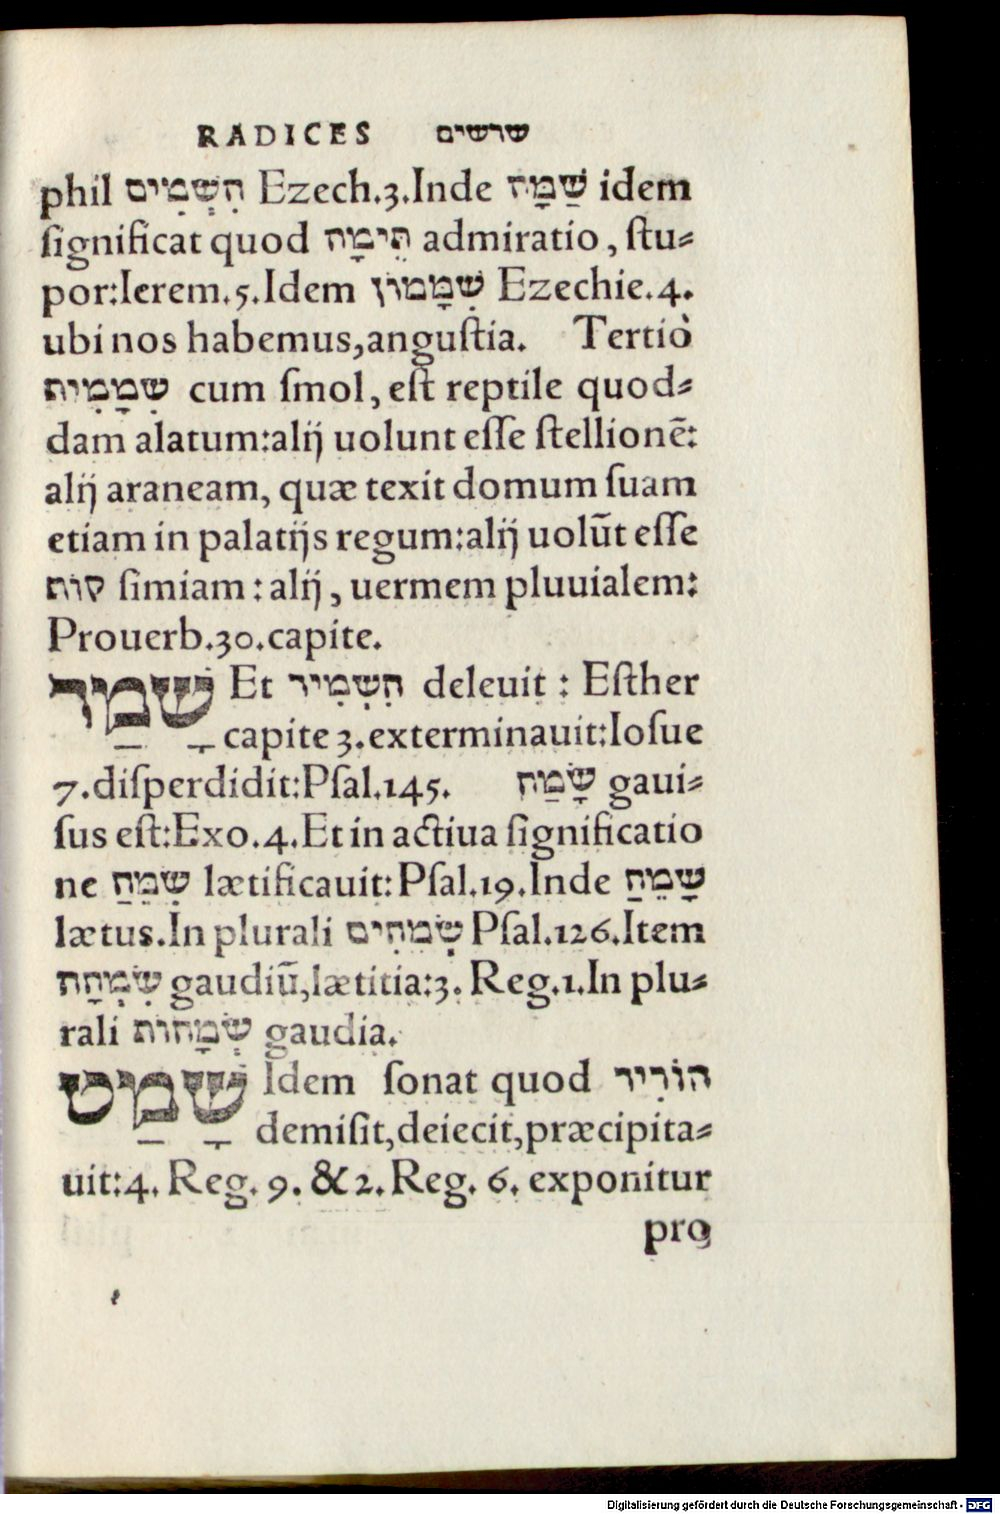 RADICES שרשים
phil הִשְׁמִים Ezech.3.Inde שַׁמָּה idem
ſignificat quod תֵּימָה admiratio, ſtu⸗
por:Ierem.5.Idem שִׁמָּמוֹן Ezechie.4.
ubi nos habemus,anguſtia. Tertiò
שְׂמָמִית cum ſmol, eſt reptile quod⸗
dam alatum:alij uolunt eſſe ſtellionē:
alij araneam, quæ texit domum ſuam
etiam in palatijs regum:alij uolūt eſſe
קוֹת ſimiam: alij, uermem pluuialem:
Prouerb.30.capite.
שָׁמַד Et הִשְׁמִיד deleuit: Eſther
capite 3.exterminauit:Ioſue
7.diſperdidit:Pſal.145. שָׂמַח gaui⸗
ſus eſt:Exo.4.Et in actiua ſignificatio
ne שִׂמֵּחַ lætificauit:Pſal.19.Inde שָׂמֵחַ
lætus.In plurali שְׂמֵחִים Pſal.126.Item
שִׂמְחָה gaudiū,lætitia:3. Reg.1.In plu⸗
rali שְׂמָחוֹת gaudia.
שָׁמַט Idem ſonat quod הוֹרִיד
demiſit,deiecit,præcipita⸗
uit:4. Reg. 9. & 2. Reg. 6. exponitur
pro
Digitalisierung gefördert durch die Deutsche Forschungsgemeinschaft - DFG